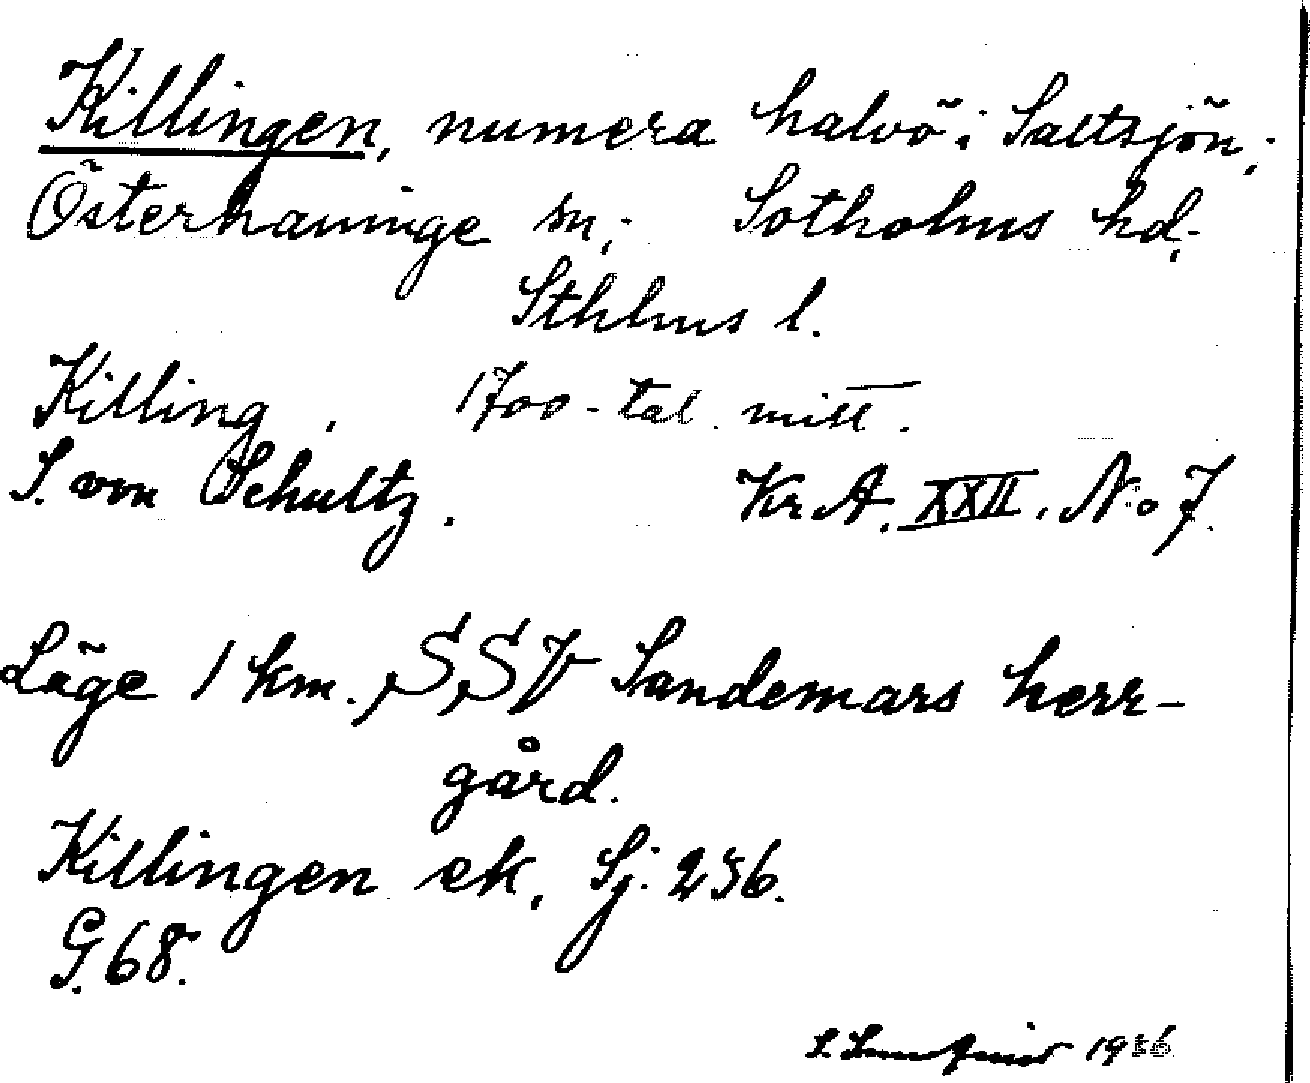 Killingen, numera halvö i Saltsjön,
Österhaninge sn, Sotholms hd,
Sthlms l.
Killing. 1700-tal mitt.
S. von Schultz. Kr A. XXII. No 7.
Läge 1 km. SSV Sandemars herr-
gård.
Killingen ek. Sj. 236.
G. 68.
S. 1936